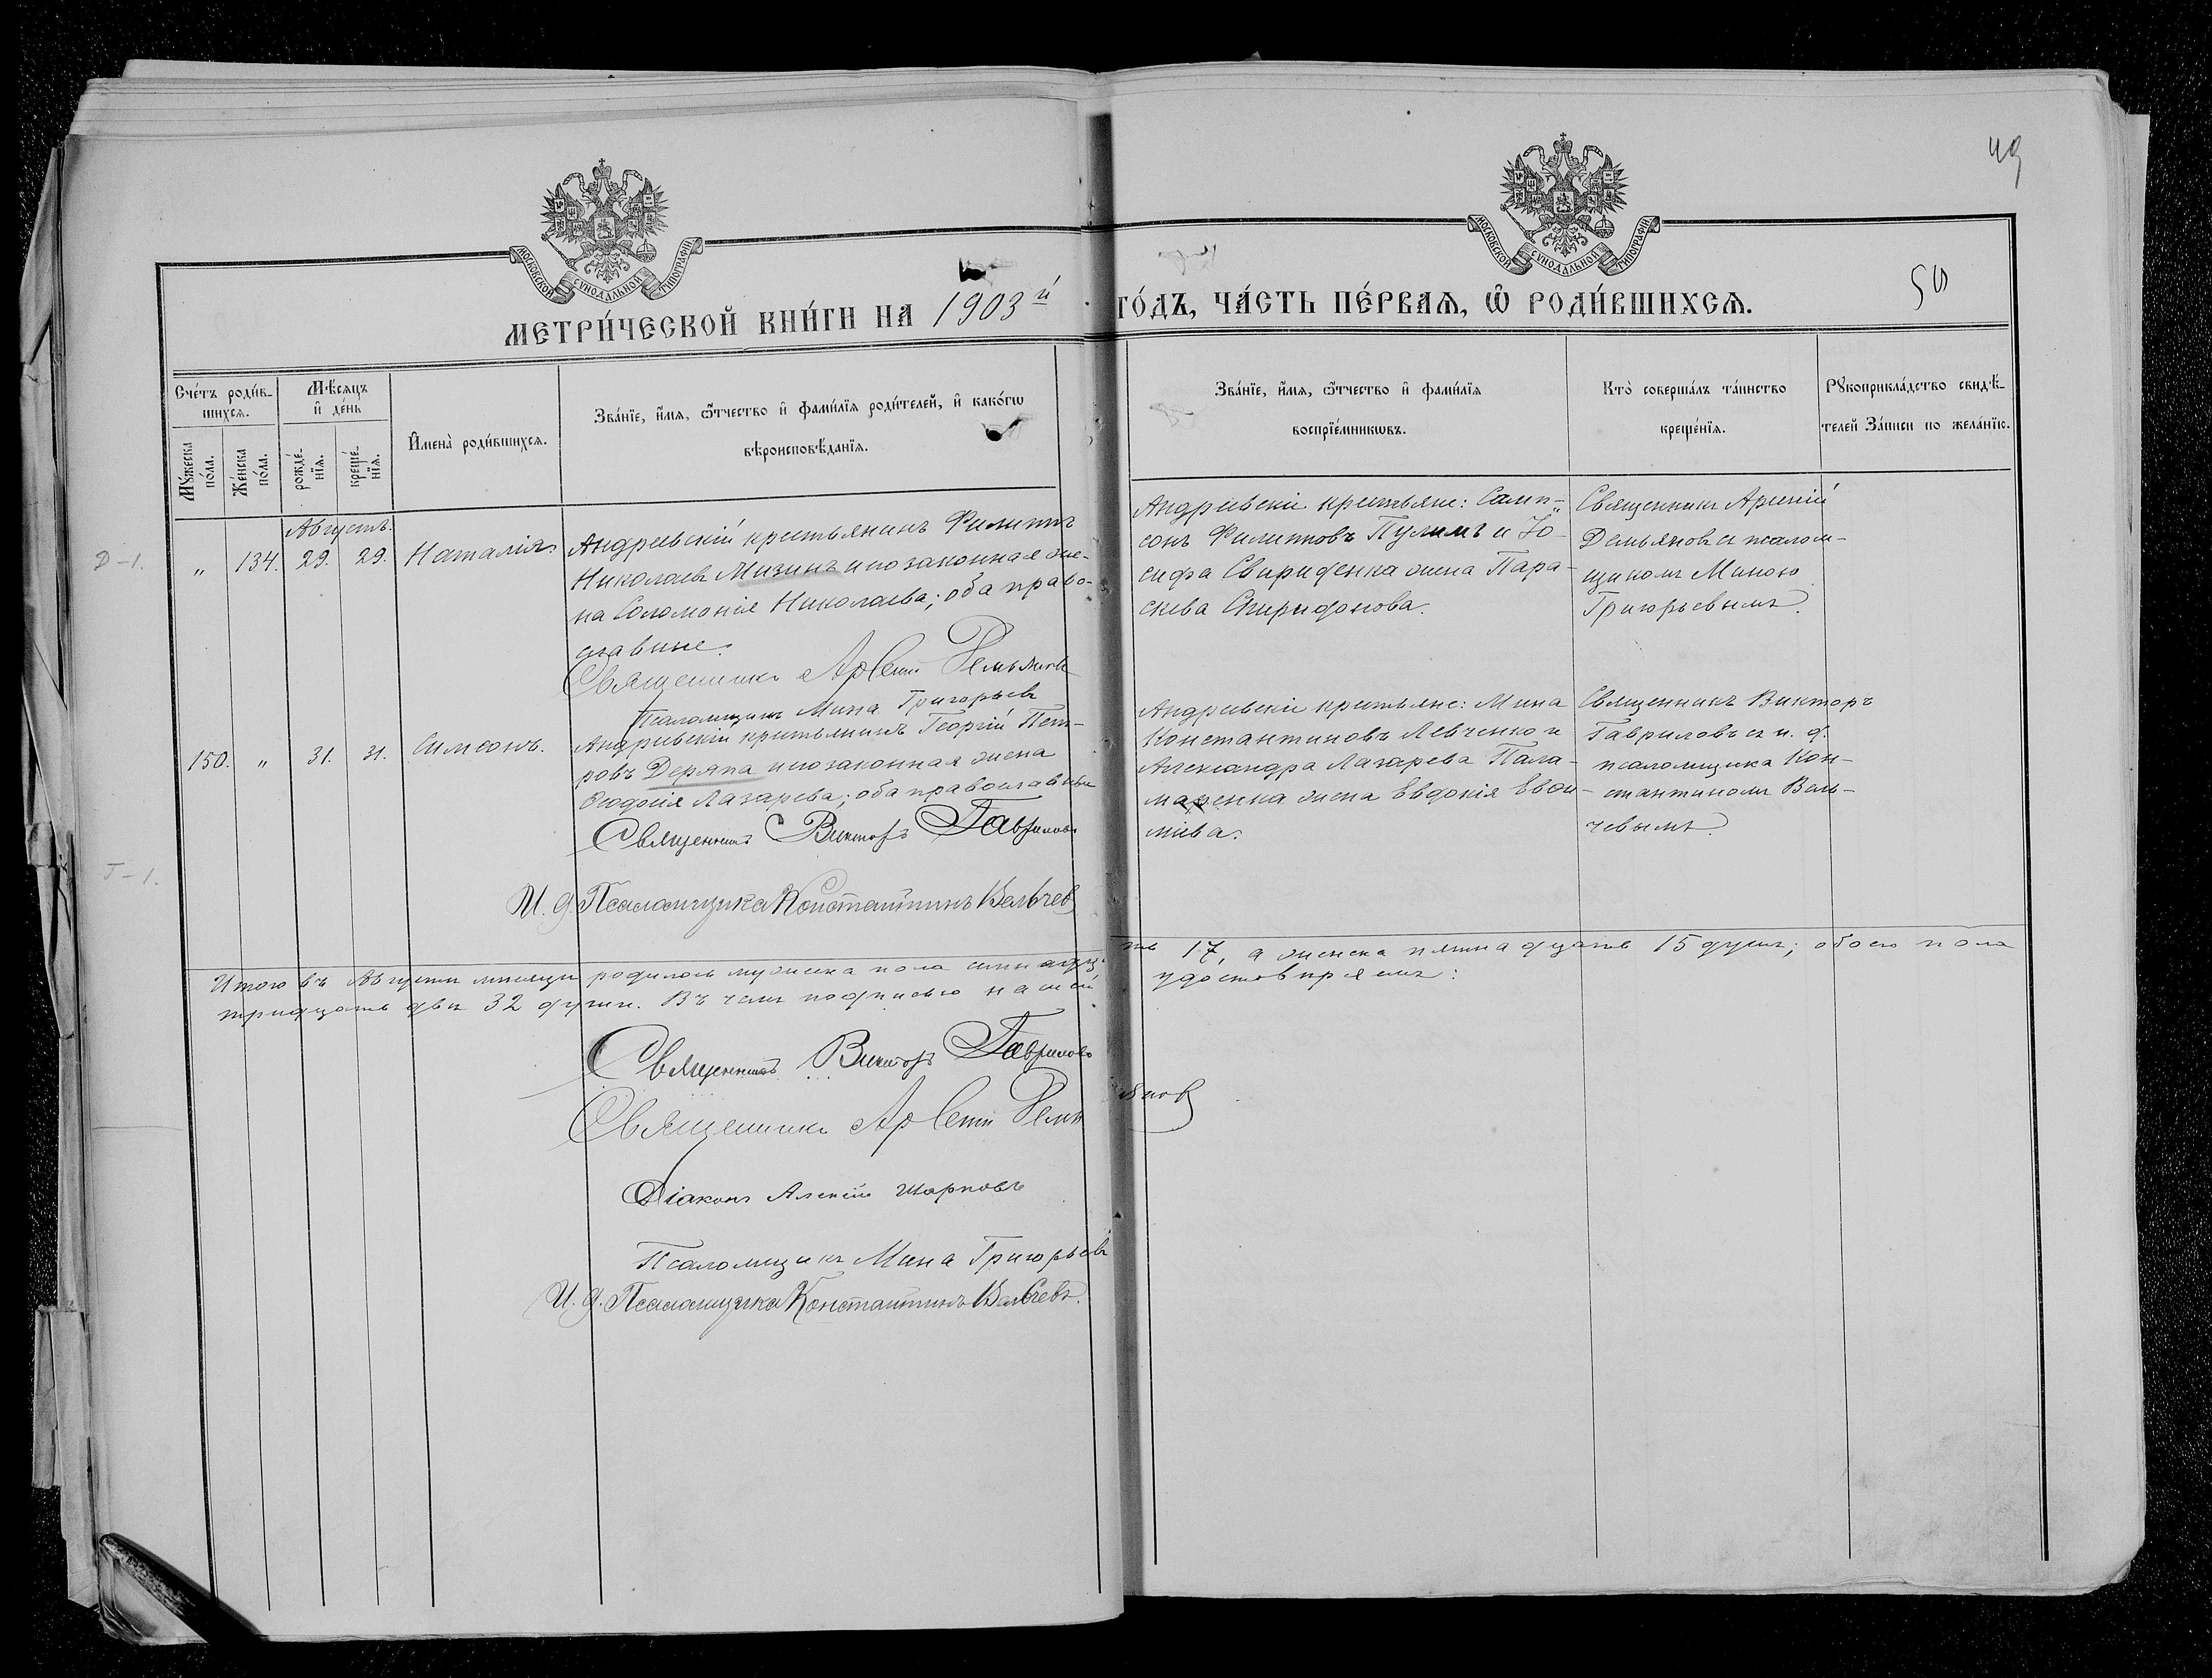 49
50
МОСКОВСКОЙ СѴНОДАЛЬНОЙ ТИПОГРАФІИ
МОСКОВСКОЙ СѴНОДАЛЬНОЙ ТИПОГРАФІИ
МЕТРИ́ЧЕСКОЙ КНИ́ГИ НА 1903й ГО́ДЪ, ЧА́СТЬ ПЕ́РВАѦ, Ѽ РОДИ́ВШИХСѦ.
Сче́тъ роди́в-
шихсѧ.
Мꙋжеска по́ла.
Же́нска по́ла.
Мѣ́сѧцъ и де́нь
рожде́нїѧ.
креще́нїѧ.
Имена̀ роди́вшихсѧ.
Зва́нїе, и́мѧ, ѻ҆́тчество и фами́лїѧ роди́телей, и како́гѡ
вѣроисповѣ́данїѧ.
Зва́нїе, и́мѧ, ѻ҆́тчество и фами́лїѧ
воспрїе́мникѡвъ.
Кто̀ соверша́лъ та́инство
креще́нїѧ.
Рꙋкоприкла́дство свидѣ́-
телей за́писи по жела́нїю.
Августъ.
Д-1.
„ 134. 29. 29. Наталія.
Андреевскій крестьянинъ Филиппъ
Николаевъ Мизинъ и его законная же-
на Соломонія Николаева; оба право-
славные.
Священникъ Арсеній Демьяновъ
Псаломщикъ Мина Григорьевъ
Андреевскіе крестьяне: Самп-
сонъ Филипповъ Пулимъ и Іо-
сифа Свириденка жена Пара-
скева Спиридонова.
Священникъ Арсеній
Демьяновъ съ псалом-
щикомъ Миною
Григорьевымъ.
150. „ 31. 31. Симеонъ.
Андреевскій крестьянинъ Георгій Пет-
ровъ Деряпа и его законная жена
Ѳеодосія Лазарева; оба православные
Священникъ Викторъ Гавриловъ
И. д. Псаломщика Константинъ Вальчевъ
Андреевскіе крестьяне: Мина
Константиновъ Левченко и
Александра Лазарева Пала-
маренка жена Евдокія Евѳи-
міева.
Священникъ Викторъ
Гавриловъ съ и. д.
псаломщика Кон-
стантиномъ Валь-
чевымъ.
Г-1.
Итого въ Августѣ мѣсяцѣ родилось мужеска пола семнадцать 17, а женска пятнадцать 15 душъ; обоего пола
тридцать двѣ 32 души. Въ чемъ подписью нашей удостовѣряемъ:
Священникъ Викторъ Гавриловъ
Священникъ Арсеній Демьяновъ
Діаконъ Алексій Шарповъ
Псаломщикъ Мина Григорьевъ
И. д. Псаломщика Константинъ Вальчевъ.